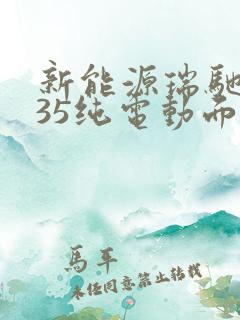 新能源瑞馳
35纯電動而
馬年
未经同意禁止转载